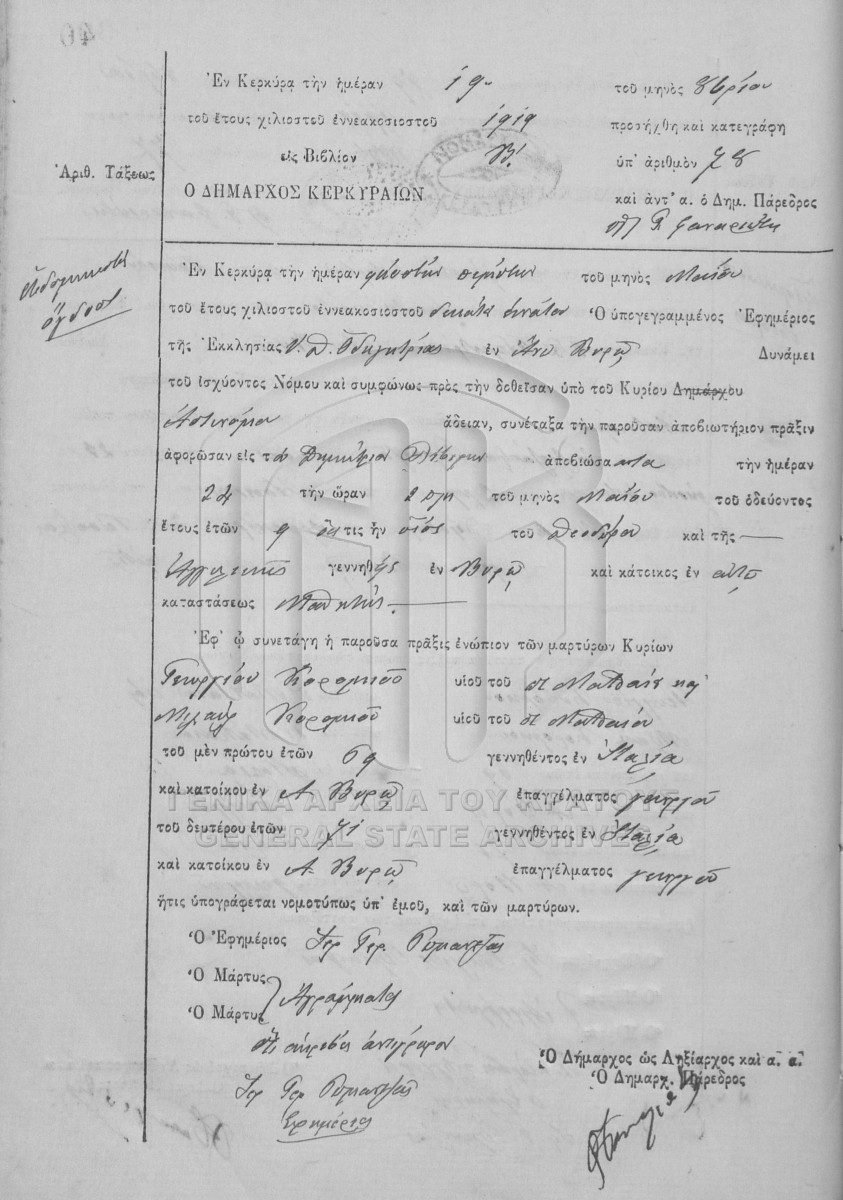 Ἐν Κερκύρᾳ τὴν ἡμέραν 19 τοῦ μηνὸς 8βρίου
τοῦ ἔτους χιλιοστοῦ ἐννεακοσιοστοῦ 1919 προσήχθη καὶ κατεγράφη
εἰς Βιβλίον Β! ὑπ' ἀριθμὸν 78
Ἀριθ. Τάξεως
Ὁ ΔΗΜΑΡΧΟΣ ΚΕΡΚΥΡΑΙΩΝ
καὶ ἀντ' α. ὁ Δημ. Πάρεδρος
ὄγδοον
Ἐν Κερκύρᾳ τὴν ἡμέραν εἰκοστὴν πέμπτην τοῦ μηνὸς Μαΐου
τοῦ ἔτους χιλιοστοῦ ἐννεακοσιοστοῦ δεκάτου ἐνάτου Ὁ ὑπογεγραμμένος Ἐφημέριος
τῆς Ἐκκλησίας Υ. Θ. Ὁδηγητρίας ἐν Ἄνω Βυρῷ Δυνάμει
τοῦ ἰσχύοντος Νόμου καὶ συμφώνως πρὸς τὴν δοθεῖσαν ὑπὸ τοῦ Κυρίου Δημάρχου
Ἀστυνόμου ἄδειαν, συνέταξα τὴν παροῦσαν ἀποβιωτήριον πρᾶξιν
ἀφορῶσαν εἰς τὸν Δημήτριον ἀποβιώσαντα τὴν ἡμέραν
24 τὴν ὥραν 2 μμ τοῦ μηνὸς Μαΐου τοῦ ὁδεύοντος
ἔτους ἐτῶν 9 ὅστις ἦν υἱὸς τοῦ Θεοδώρου καὶ τῆς
Ἀγγελικῆς γεννηθεὶς ἐν Βυρῷ καὶ κάτοικος ἐν αὐτῷ
καταστάσεως Μαθητής.
Ἐφ' ᾧ συνετάγη ἡ παροῦσα πρᾶξις ἐνώπιον τῶν μαρτύρων Κυρίων
Γεωργίου υἱοῦ τοῦ π. Ματθαίου καὶ
Μιχαὴλ υἱοῦ τοῦ π. Ματθαίου
τοῦ μὲν πρώτου ἐτῶν 69 γεννηθέντος ἐν Ἰταλίᾳ
καὶ κατοίκου ἐν Α. Βυρῷ ἐπαγγέλματος γεωργοῦ
ΓΕΝΙΚΑ ΑΡΧΕΙΑ ΤΟΥ ΚΡΑΤΟΥΣ
τοῦ δευτέρου ἐτῶν 71 γεννηθέντος ἐν Ἰταλίᾳ
GENERAL STATE ARCHIVES
καὶ κατοίκου ἐν Α. Βυρῷ ἐπαγγέλματος γεωργοῦ
ἥτις ὑπογράφεται νομοτύπως ὑπ' ἐμοῦ, καὶ τῶν μαρτύρων.
Ὁ Ἐφημέριος
Ὁ Μάρτυς
Ἀγράμματοι
Ὁ Μάρτυς
Ὅτι ἀκριβὲς ἀντίγραφον
Ὁ Δήμαρχος ὡς Ληξίαρχος καὶ α. α.
Ὁ Δημαρχ. Πάρεδρος
Ἐφημέριος